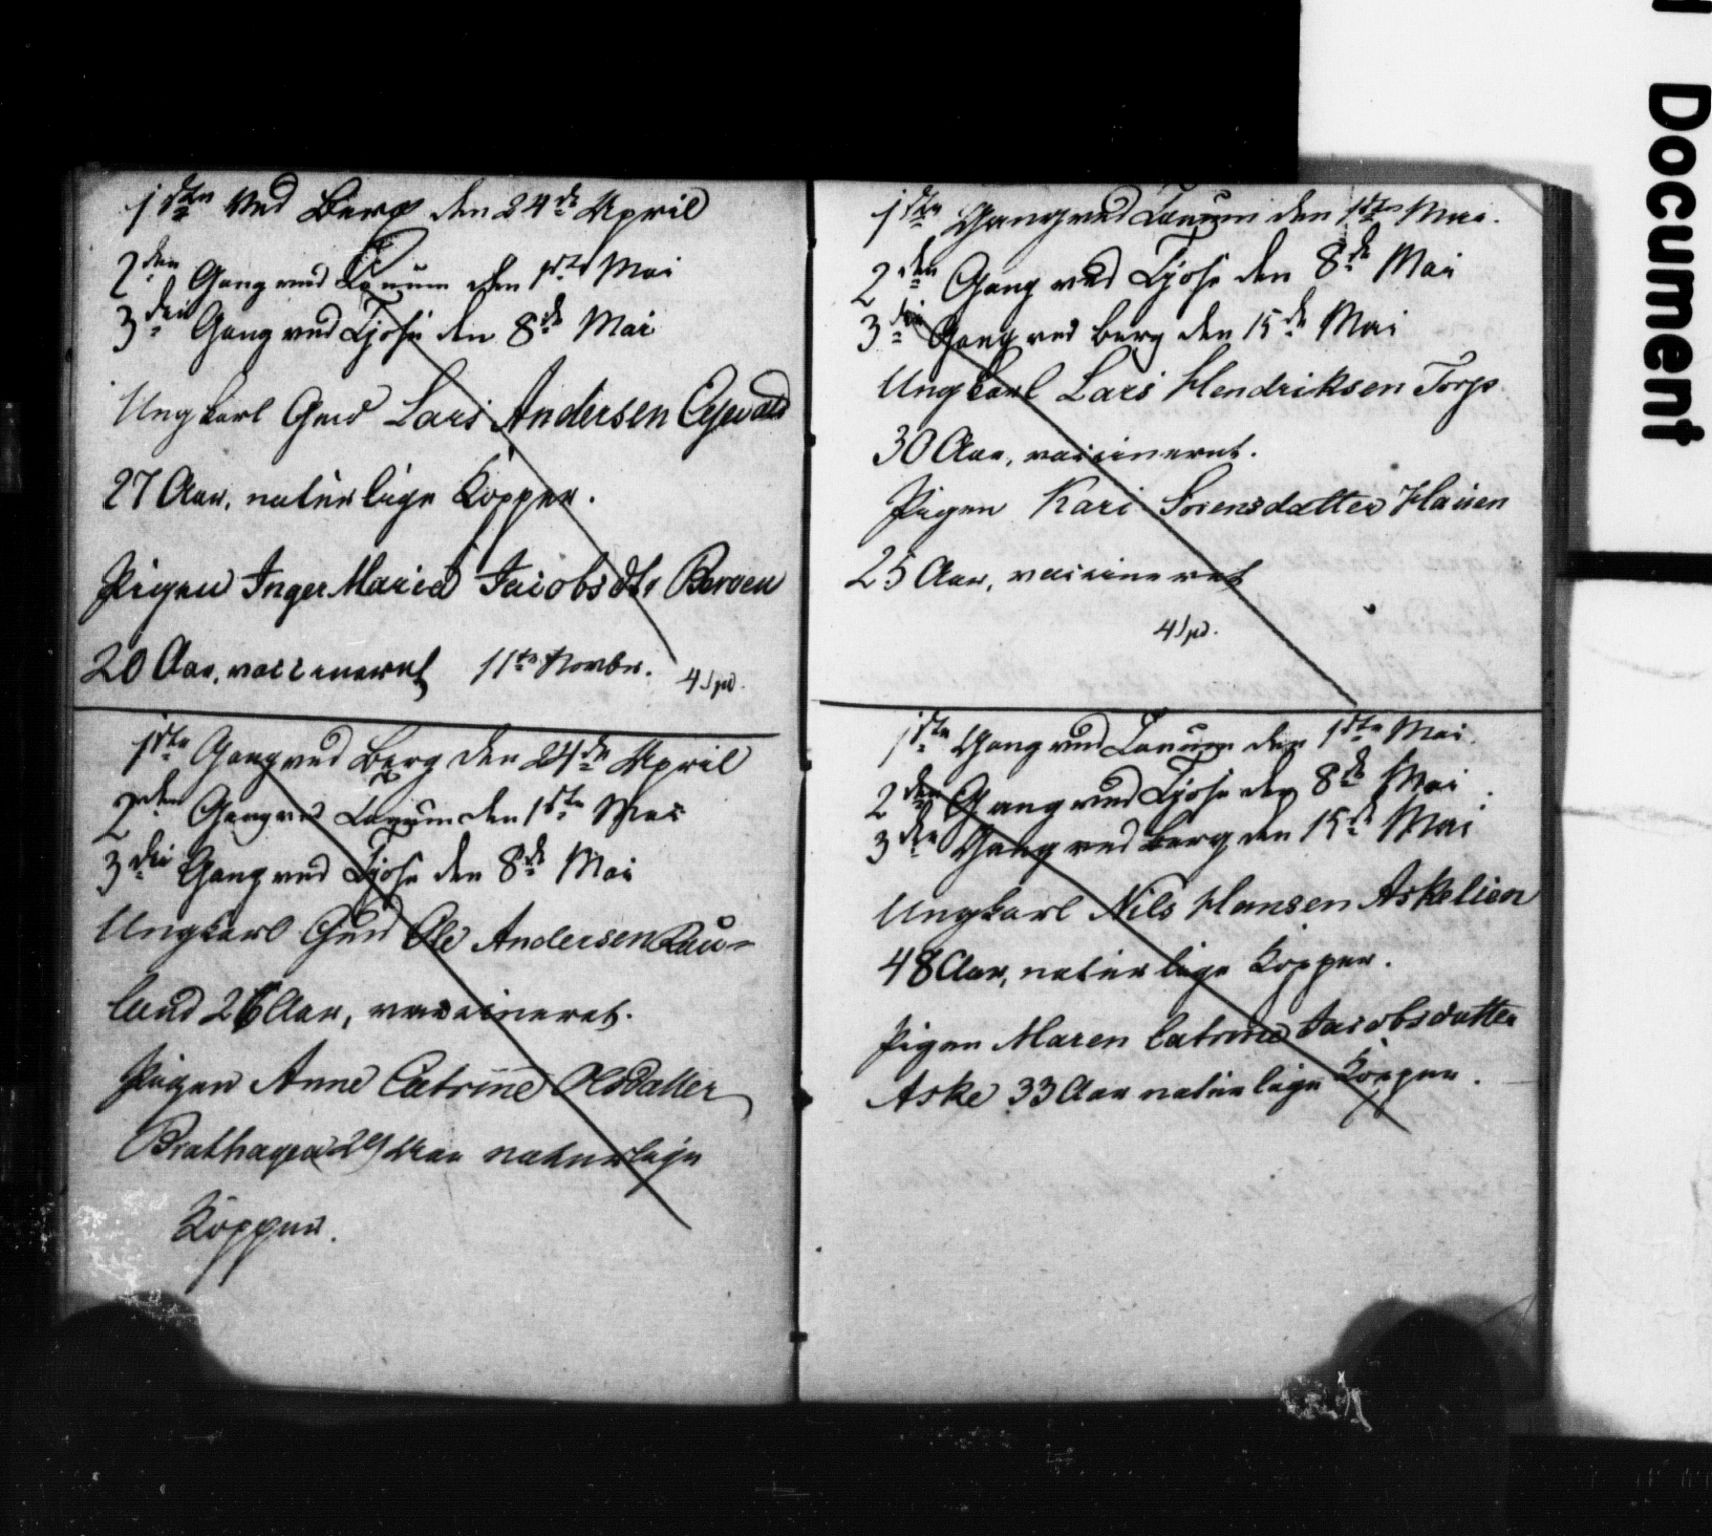 1ste ved Berg den 24de April
2den Gang ved Tanum den 1ste Mai
3die Gang ved Tjose den 8de Mai
Ungkarl Lars Andersen
27 Aar, naturlige Kopper.
Pigen Inger Maria Jacobsdtr Bergen
20 Aar, vaccineret 11te Novbr. 4 Spd.
1ste Gang ved Berg den 24de April
2den Gang ved Tanum den 1ste Mai
3die Gang ved Tjose den 8de Mai
Ungkarl Ole Andersen Rau-
land 26 Aar, vaccineret.
Pigen Anne Catrine Olsdatter
29 Aar naturlige
Kopper.
1ste Gang ved Tanum den 1ste Mai.
2den Gang ved Tjose den 8de Mai
3die Gang ved Berg den 15de Mai
Ungkarl Lars Hendriksen Torp
30 Aar, vaccineret.
Pigen Kari Sørensdatter Hauen
25 Aar, vaccineret
4 Spd.
1ste Gang ved Tanum den 1ste Mai.
2den Gang ved Tjose den 8de Mai
3die Gang ved Berg den 15de Mai
Ungkarl Nils Hansen Askelien
48 Aar, naturlige Kopper.
Pigen Maren Catrine Jacobsdatter
Aske 33 Aar naturlige Kopper.
Document